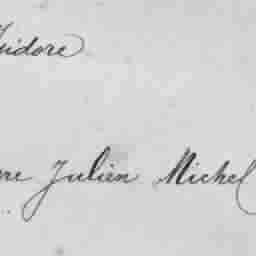 Isidore
re Julien Michel